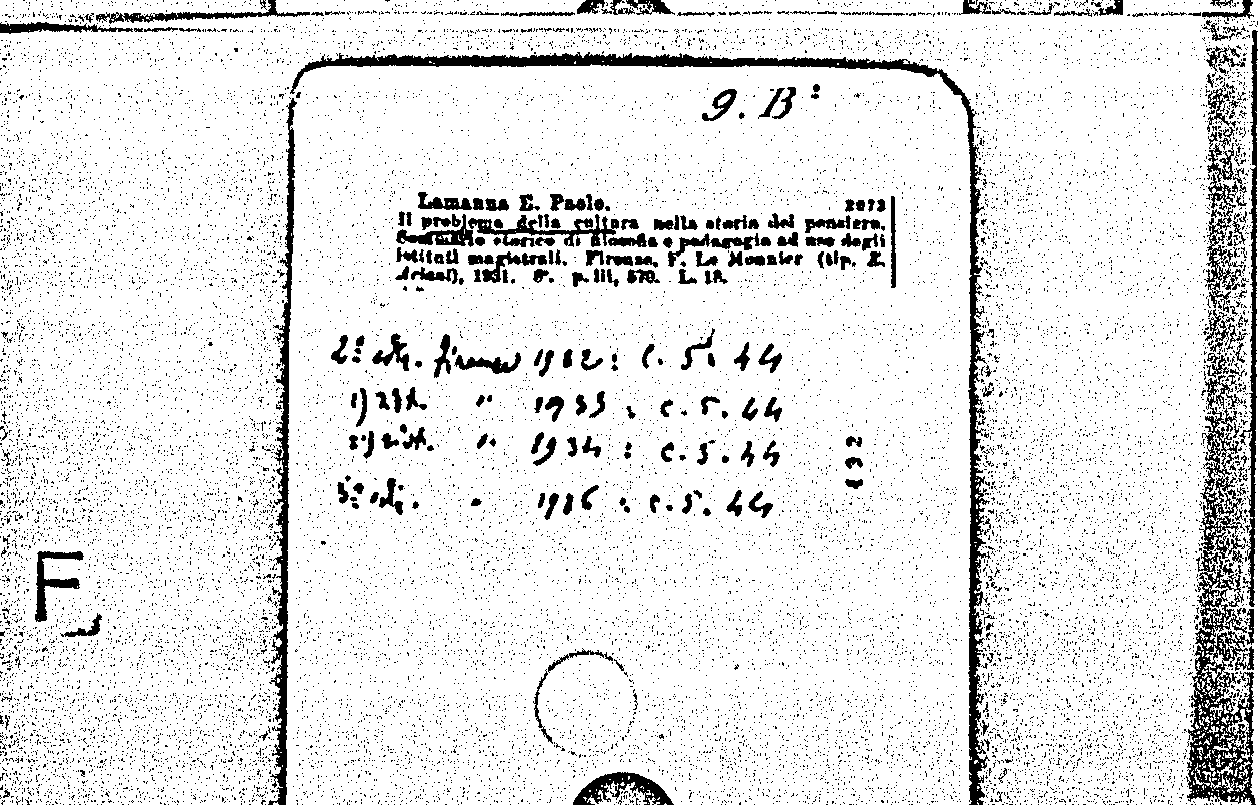 9. B
Lamanna E. Paolo. 2073
Il problema della cultura nella storia del pensiero.
Sommario storico di filosofia e pedagogia ad uso degli
istituti magistrali. Firenze, F. Le Monnier (tip. E.
Ariani), 1931. 8°. p. III, 570. L. 18.
2ª ediz. firenze 1932: C. 5. 44
" 1933: c. 5. 44
" 1934: c. 5. 44
5ª ediz. " 1936: c. 5. 44
F